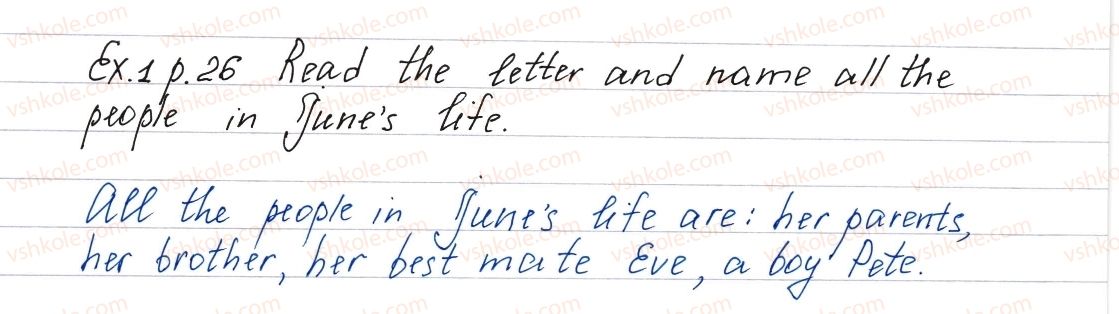 Ex.1 p.26 Read the letter and name all the
people in June's life.
All the people in June's life are: her parents,
her brother, her best mate Eve, a boy Pete.